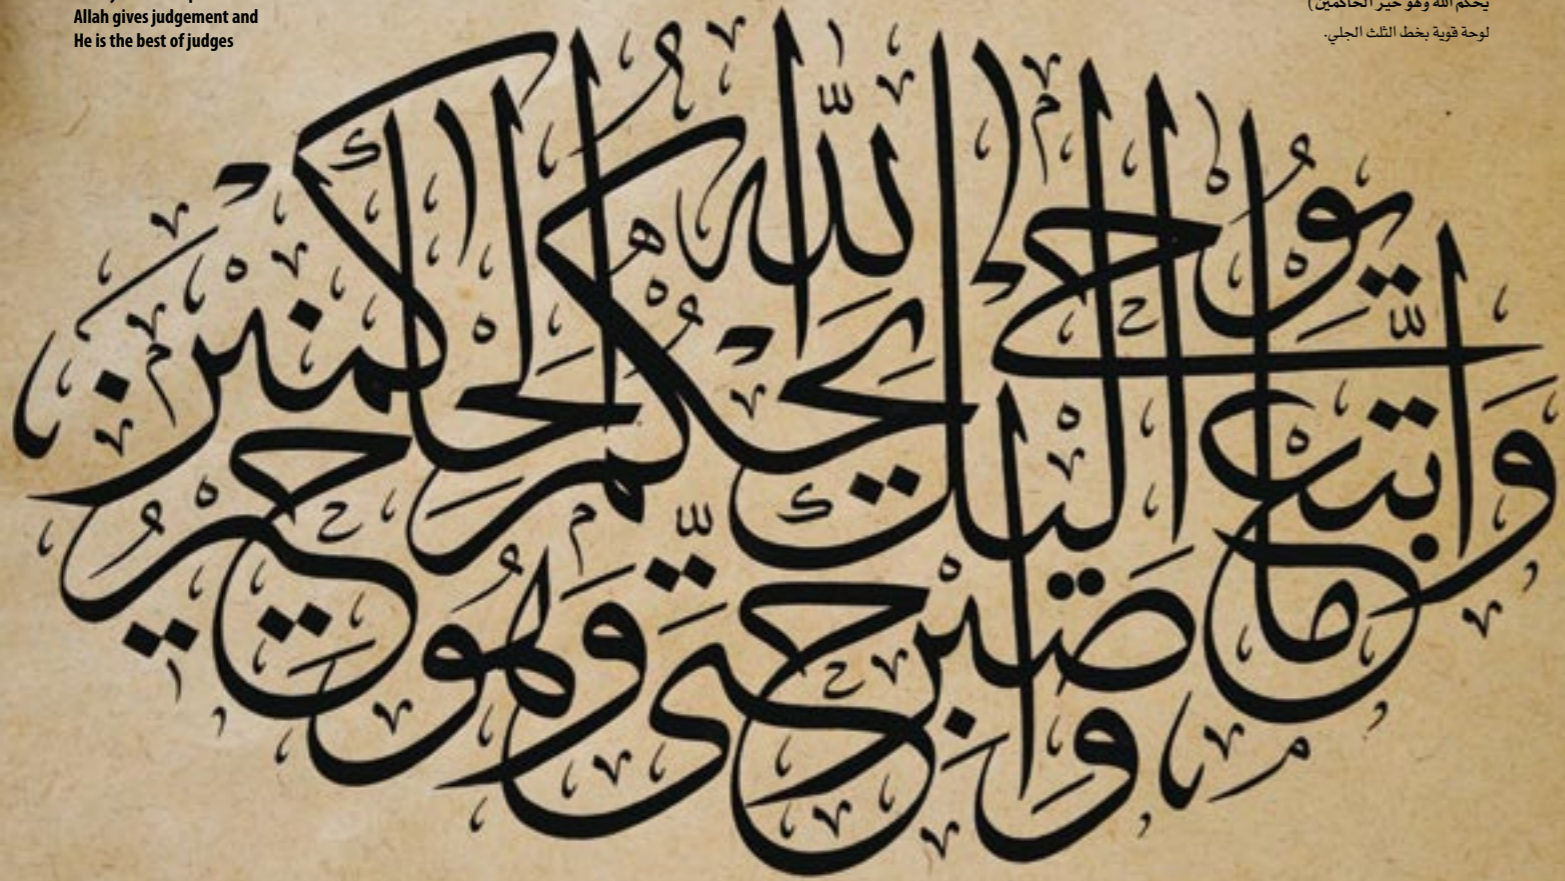 Allah gives judgement and
He is the best of judges
يحكم الله وهو خير الحاكمين)
لوحة قوية بخط الثلث الجلي.
واتبع ما يوحى اليك واصبر حتى يحكم الله وهو خير الحاكمين